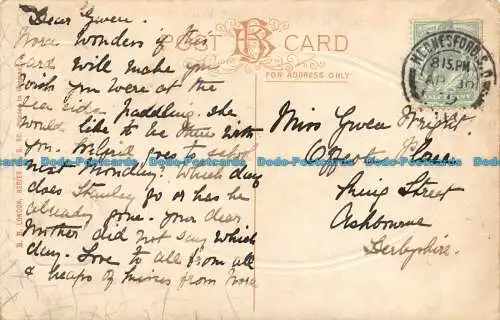 Dear Gwen.
Nora wonders if this
Card will make you
wish you were at the
sea side paddling. She
would like to be there with
you. goes to school
next Monday. Which day
does Stanley go or has he
already gone. Your dear
Mother did not say which
day. Love to all from all
& heaps of kisses from Nora
POST CARD
FOR ADDRESS ONLY
B. B. LONDON,
HEDNESFORD S.O
8 15 PM
AP 30
Miss Gwen Wright.
Place
King Street
Ashbourne
Derbyshire.
Dodo-Postcards Dodo-Postcards Dodo-Postcards Dodo-Postcards